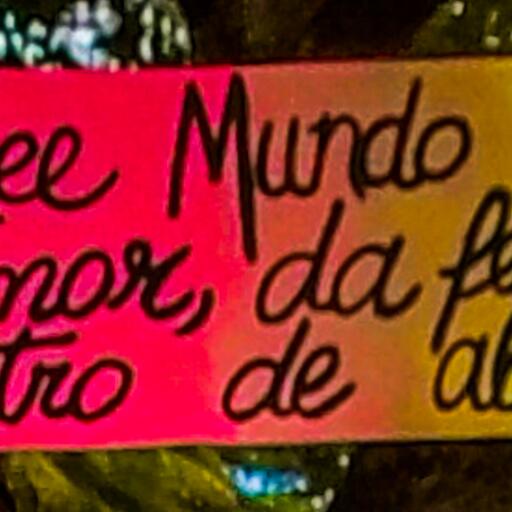 ee Mundo
mor, da fe
tro de ab